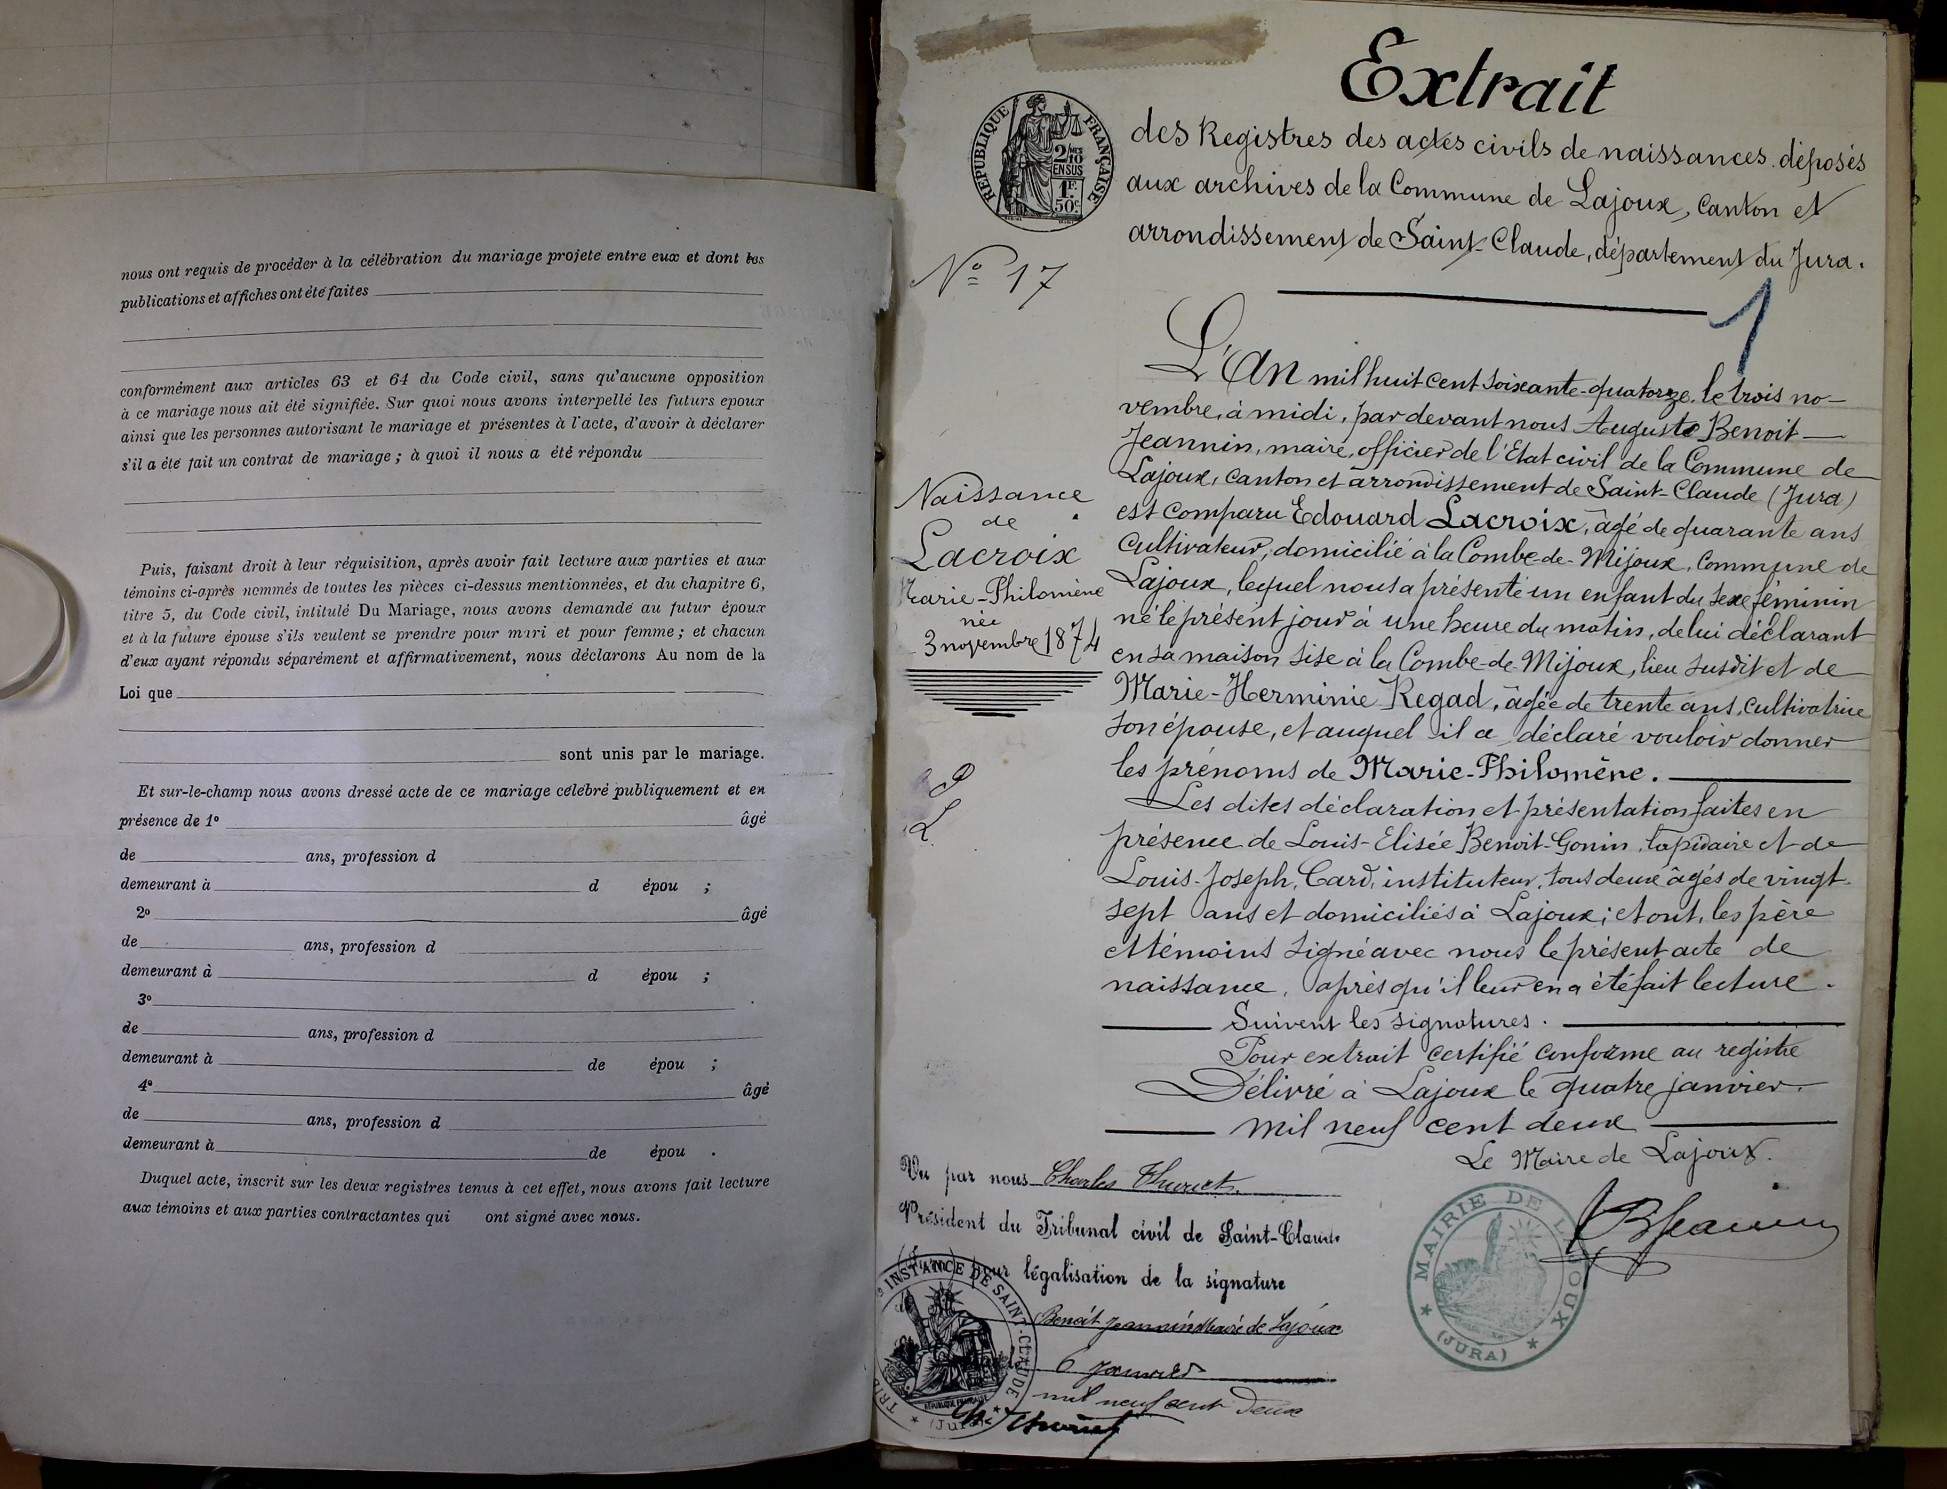 nous ont requis de procéder à la célébration du mariage projeté entre eux et dont les
publications et affiches ont été faites
conformément aux articles 63 et 64 du Code civil, sans qu'aucune opposition
à ce mariage nous ait été signifiée. Sur quoi nous avons interpellé les futurs epoux
ainsi que les personnes autorisant le mariage et présentes à l'acte, d'avoir à déclarer
s'il a été fait un contrat de mariage ; à quoi il nous a été répondu
Puis, faisant droit à leur réquisition, après avoir fait lecture aux parties et aux
témoins ci-après nommés de toutes les pièces ci-dessus mentionnées, et du chapitre 6,
titre 5, du Code civil, intitulé Du Mariage, nous avons demandé au futur époux
et à la future épouse s'ils veulent se prendre pour mari et pour femme ; et chacun
d'eux ayant répondu séparément et affirmativement, nous déclarons Au nom de la
Loi que
sont unis par le mariage.
Et sur-le-champ nous avons dressé acte de ce mariage célébré publiquement et en
présence de 1º âgé
de ans, profession d
demeurant à d épou ;
2º âgé
de ans, profession d
demeurant à d épou ;
3º
de ans, profession d
demeurant à de épou ;
4º âgé
de ans, profession d
demeurant à de épou .
Duquel acte, inscrit sur les deux registres tenus à cet effet, nous avons fait lecture
aux témoins et aux parties contractantes qui ont signé avec nous.
Extrait
des Registres des actes civils de naissances déposés
aux archives de la Commune de Lajoux, canton et
arrondissement de Saint-Claude, département du Jura.
RÉPUBLIQUE FRANÇAISE
2/10
EN SUS
1F.
50c.
Nº 17
1
L'An mil huit cent soixante-quatorze, le trois no-
vembre, à midi, par devant nous Auguste Benoit
Jeannin, maire, officier de l'Etat civil de la Commune de
Lajoux, canton et arrondissement de Saint-Claude (Jura)
est comparu Edouard Lacroix, âgé de quarante ans
cultivateur, domicilié à la Combe-de-Mijoux, commune de
Lajoux, lequel nous a présenté un enfant du sexe féminin
né le présent jour à une heure du matin, de lui déclarant
en sa maison sise à la Combe-de-Mijoux, lieu susdit et de
Marie-Herminie Regad, âgée de trente ans, cultivatrice
son épouse, et auquel il a déclaré vouloir donner
les prénoms de Marie-Philomène.
Les dites déclaration et présentation faites en
présence de Louis-Elisée Benoit-Gonin, lapidaire et de
Louis-Joseph Card, instituteur, tous deux âgés de vingt-
sept ans et domiciliés à Lajoux ; et ont, les père
et témoins signé avec nous le présent acte de
naissance, après qu'il leur en a été fait lecture.
Suivent les signatures.
Pour extrait certifié conforme au registre
Délivré à Lajoux le quatre janvier
mil neuf cent deux
Le Maire de Lajoux.
Naissance
de
Lacroix
Marie-Philomène
née
3 novembre 1874
Vu par nous Charles Thuriet
Président du Tribunal civil de Saint-Claude
pour légalisation de la signature
Benoit Jeannin Maire de Lajoux
6 Janvier
mil neuf cent deux
Ch. Thuriet
INSTANCE DE SAINT-CLAUDE
(Jura)
RÉPUBLIQUE FRANÇAISE
MAIRIE DE LAJOUX
(JURA)